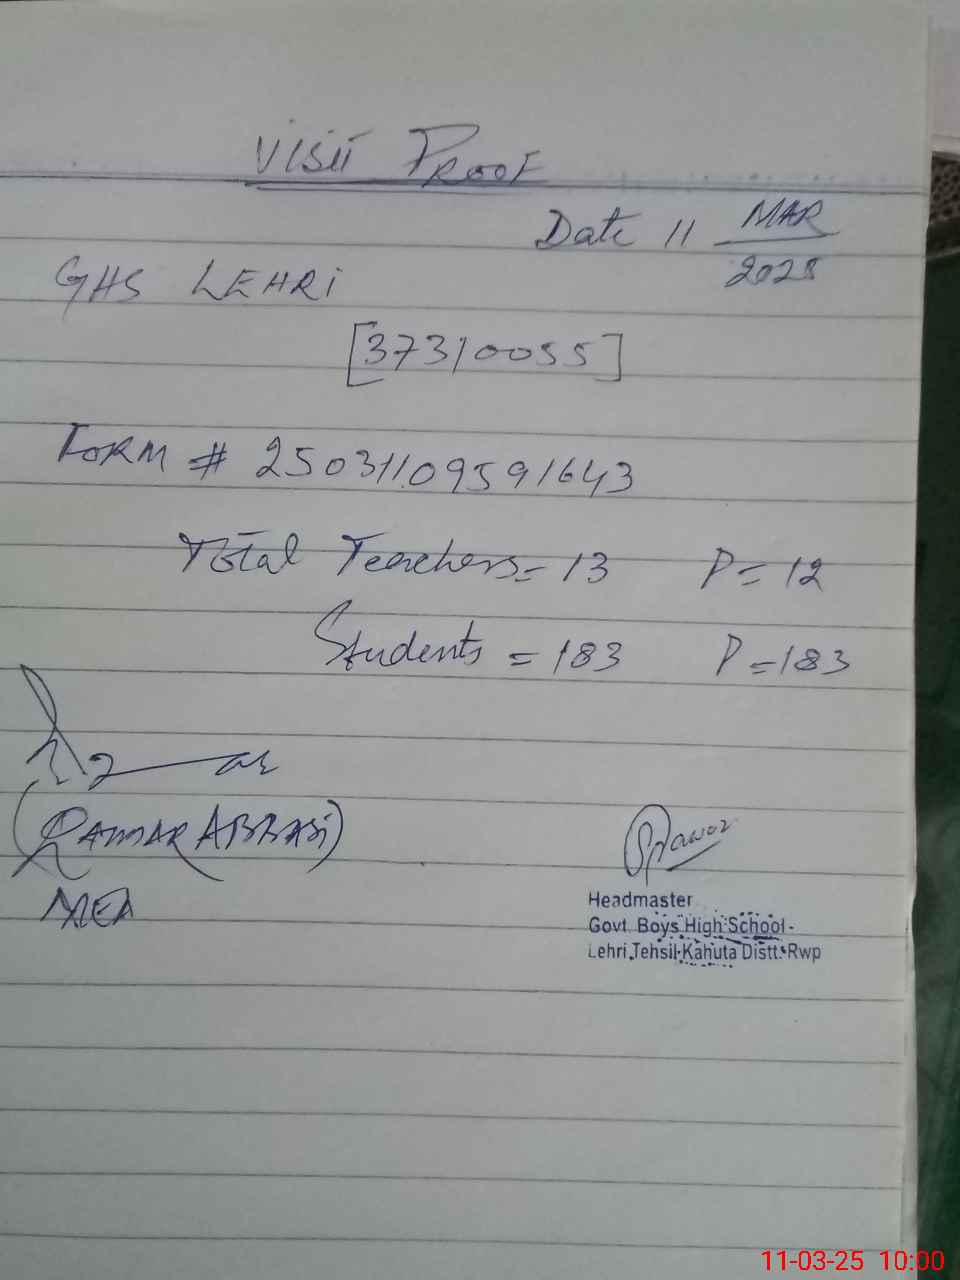 VISIT PROOF
Date 11 MAR
2025
GHS LEHRi
[37310055]
FORM # 25031109591643
Total Teachers = 13 P = 12
Students = 183 P = 183
(QAMAR ABBASi)
MEA
Headmaster
Govt. Boys High School
Lehri Tehsil Kahuta Distt. Rwp
11-03-25 10:00